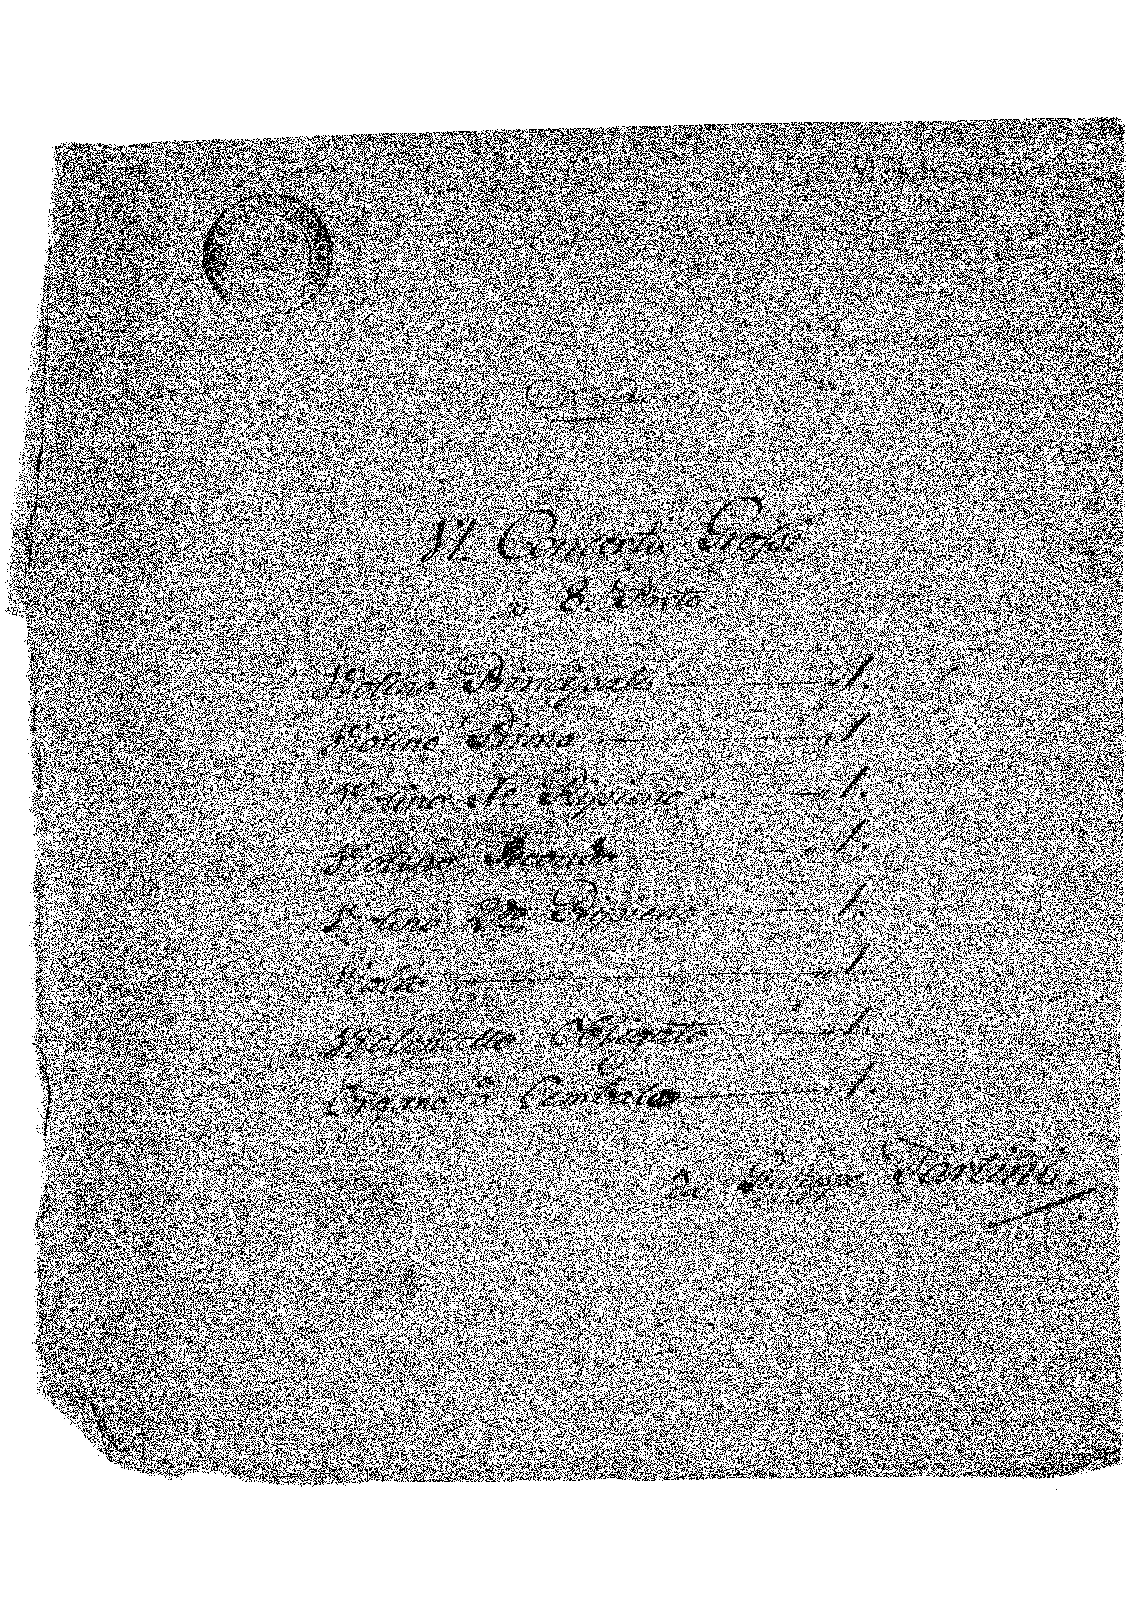 VI Concerto Grosso
a 8. Parte
Violino Principale 1.
Violino Primo 1
Violino de Ripieno 1.
Violino Secondo 1.
Violino Ripieno 1.
Viola 1
Violoncello Obligato 1.
Organo o Cembalo 1.
De Tartini.